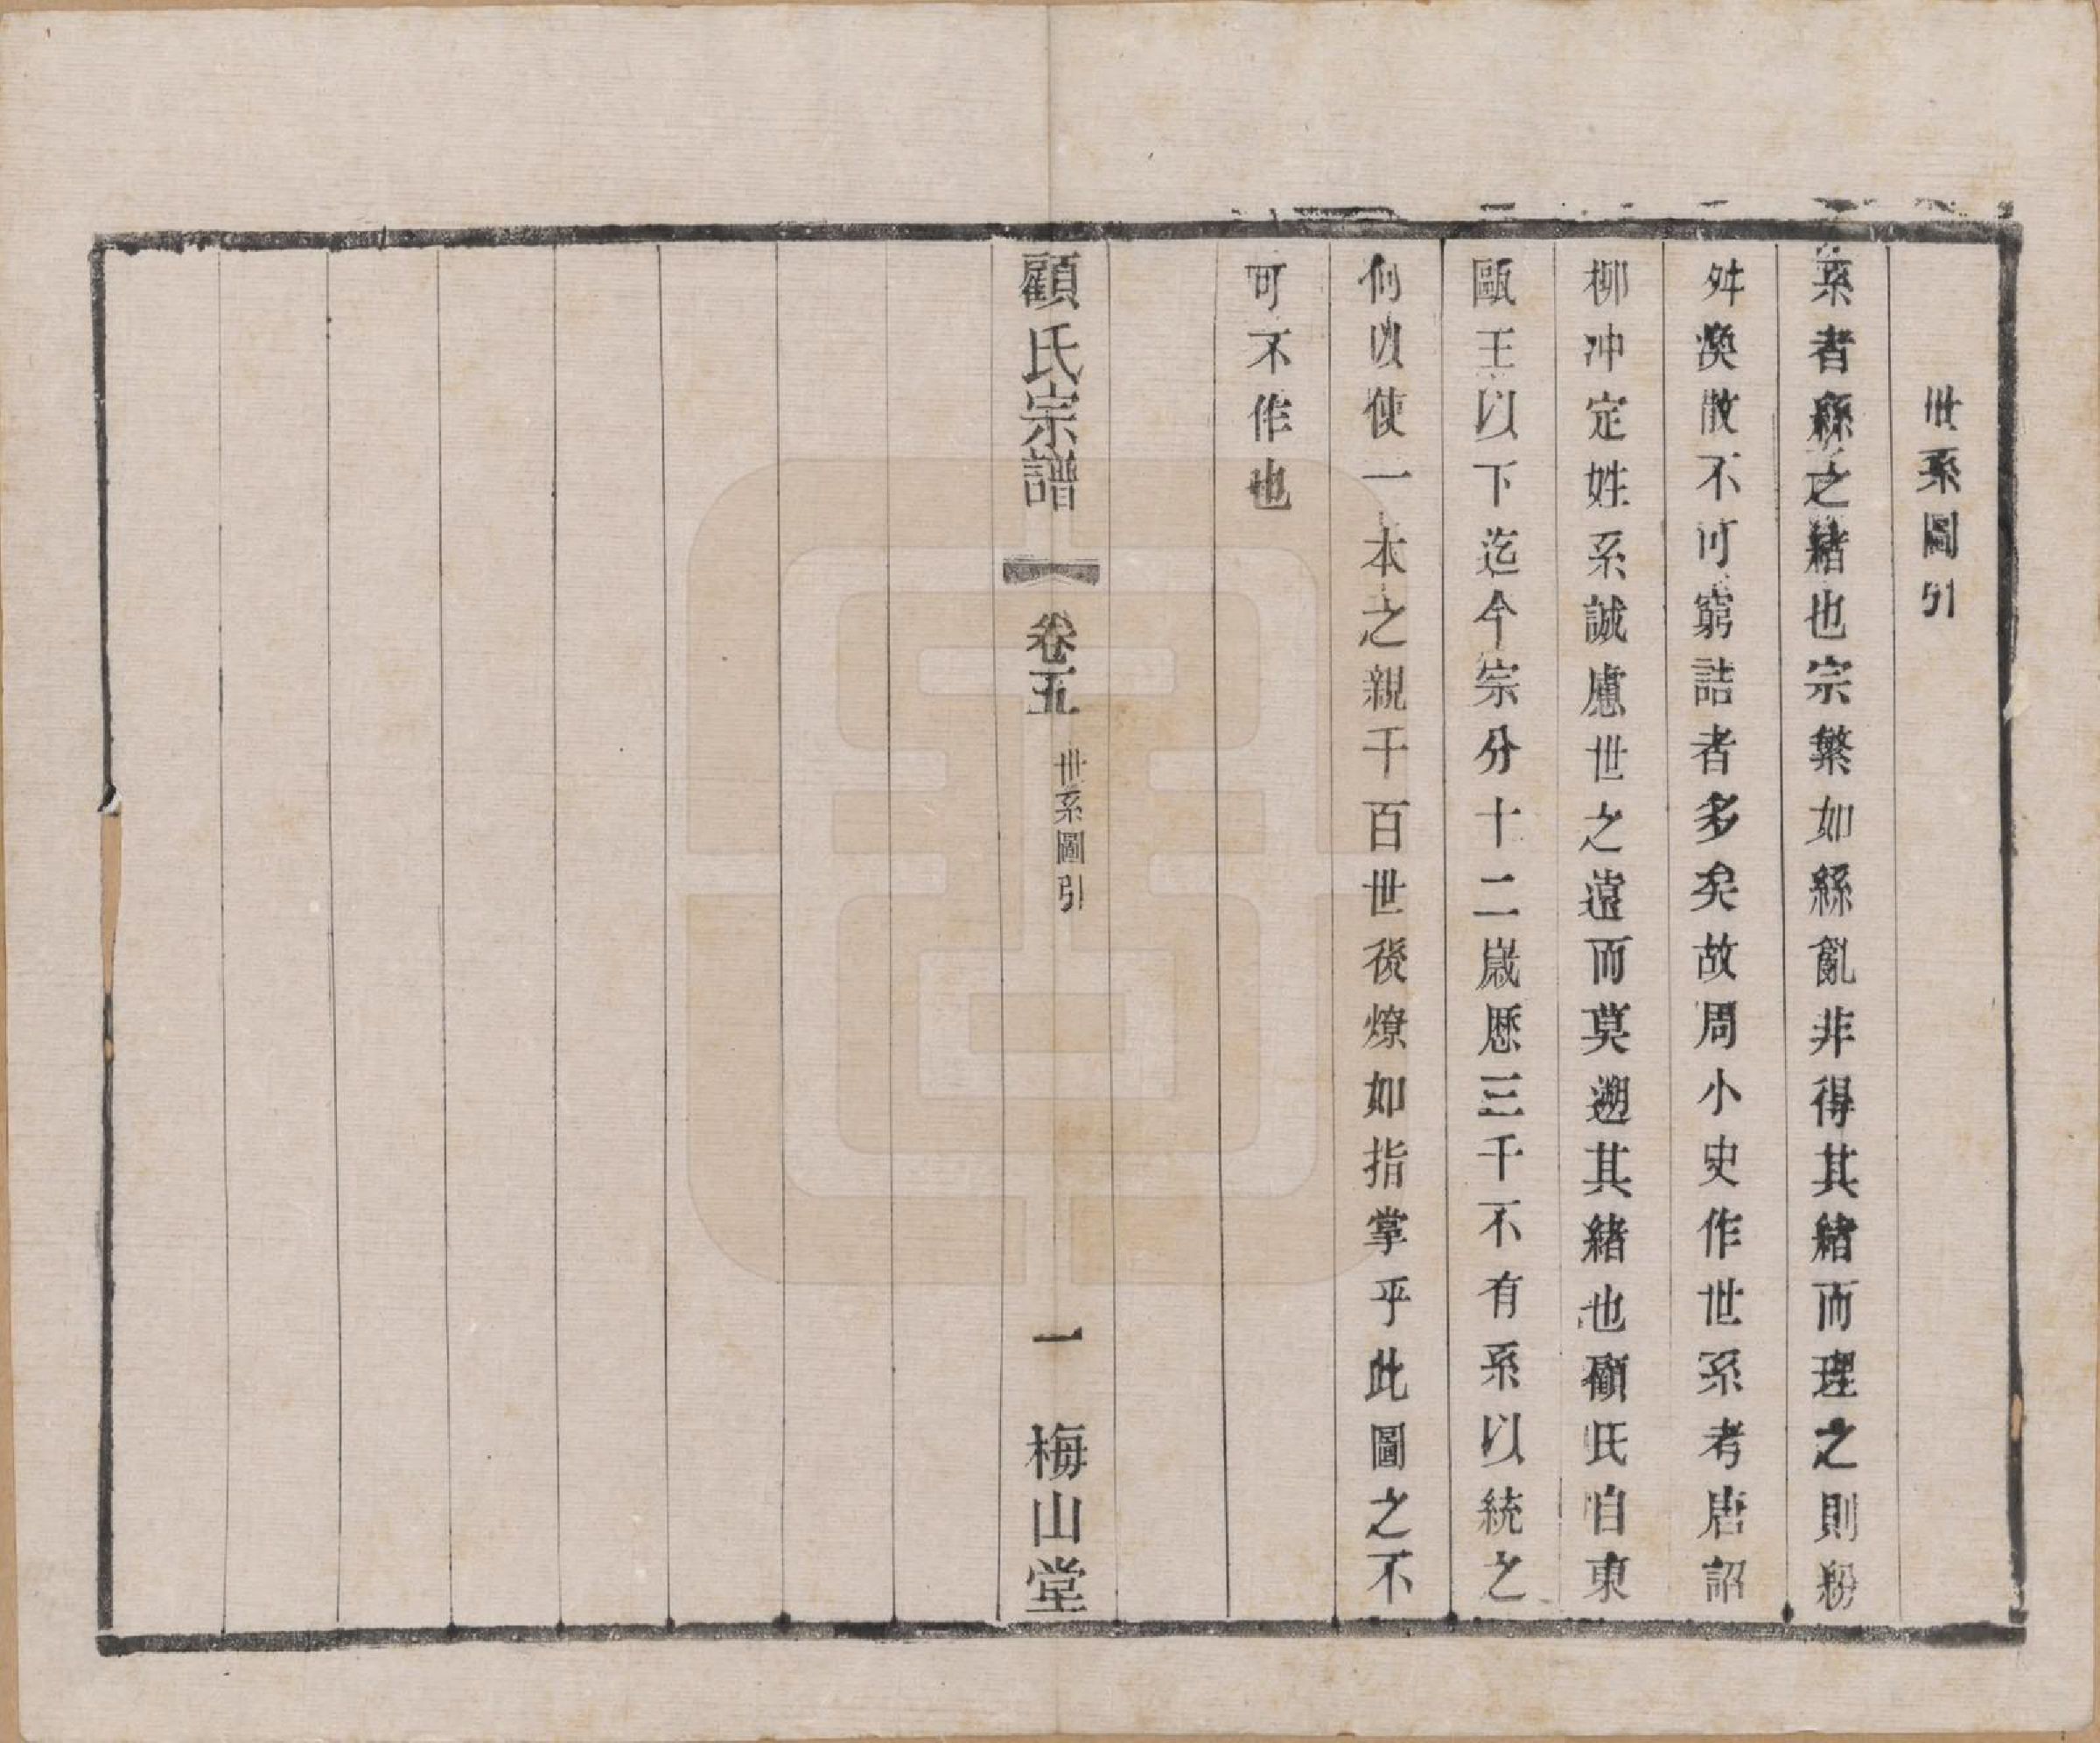 世系圖引
系者縣之緒也宗繁如縣亂非得其緒而理之則粉
舛渙散不可窮詰者多矣故周小史作世系考唐詔
柳冲定姓系誠慮世之遠而莫遡其緒也顧氏自東
甌王以下迄今宗分十二歲歷三千不有系以統之
何以使一本之親千百世後燎如指掌乎此圖之不
可不作也
顧氏宗譜
卷五
世系圖引
一
梅山堂